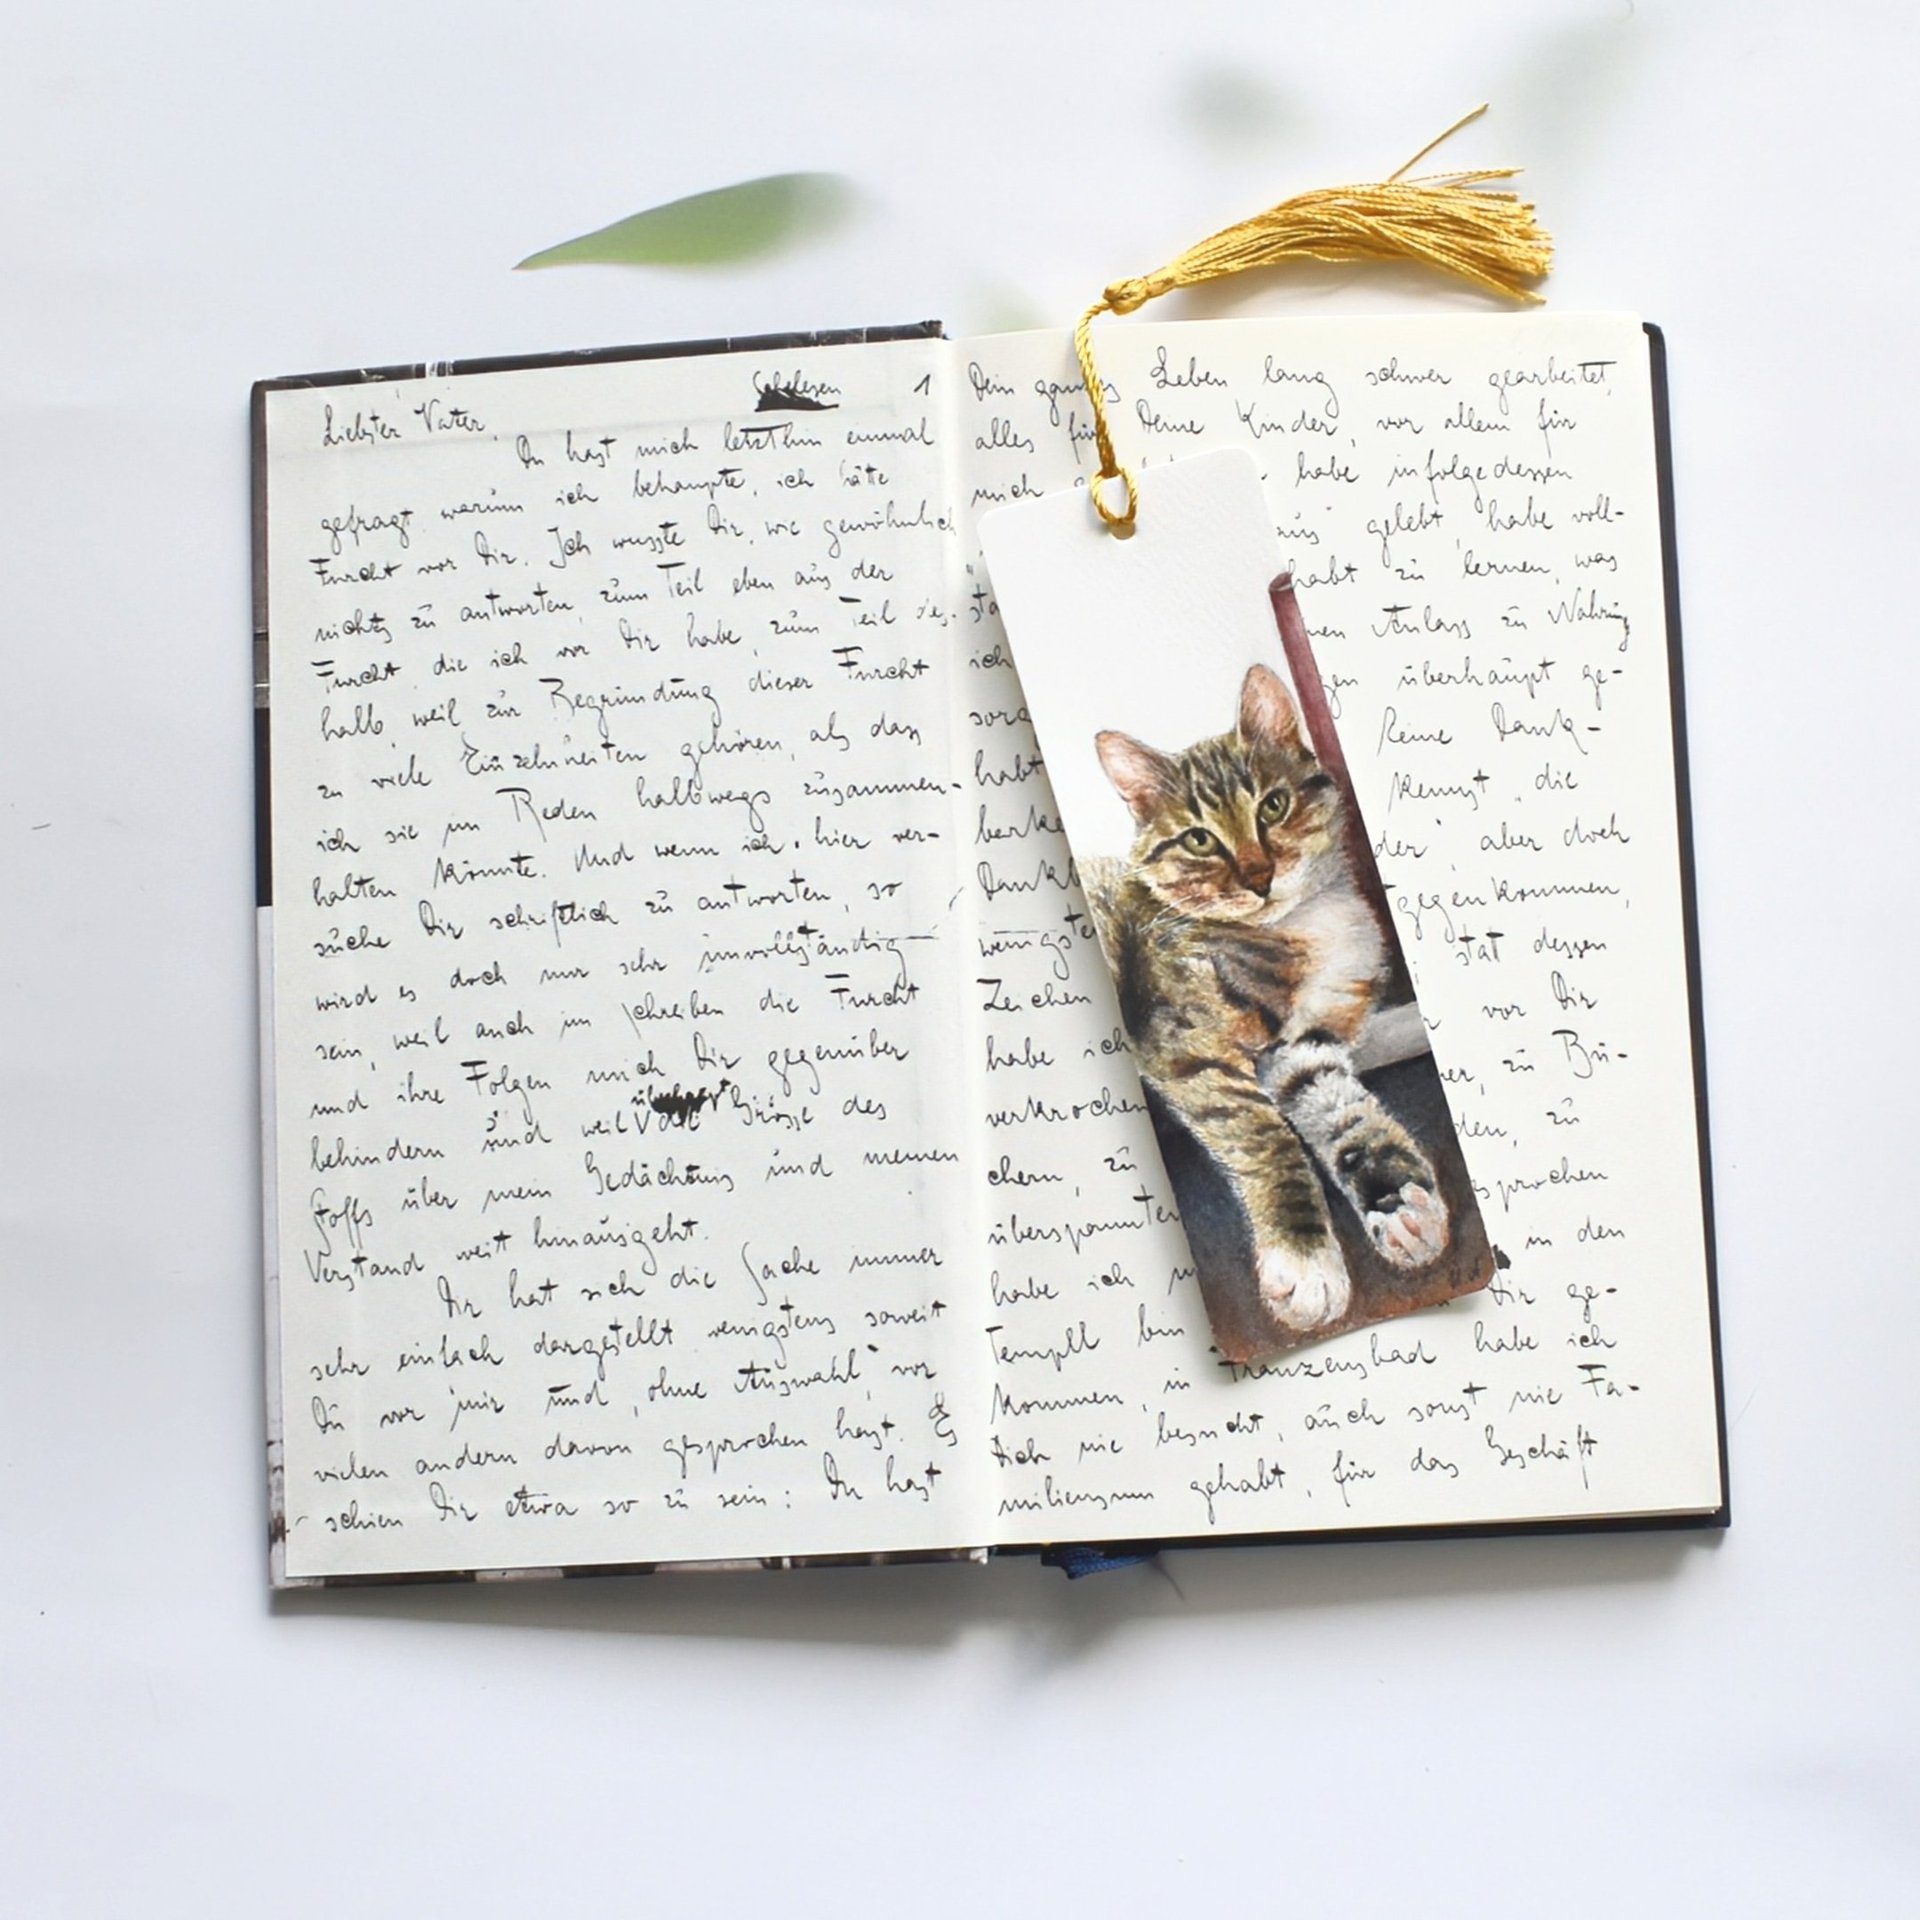 Schelesen 1
Liebster Vater,
Du hast mich letzthin einmal
gefragt, warum ich behaupte, ich hätte
Furcht vor Dir. Ich wusste Dir, wie gewöhnlich
nichts zu antworten, zum Teil eben aus der
Furcht, die ich vor Dir habe, zum Teil des-
halb, weil zur Begründung dieser Furcht
zu viele Einzelnheiten gehören, als dass
ich sie im Reden halbwegs zusammen-
halten könnte. Und wenn ich hier ver-
suche Dir schriftlich zu antworten, so
wird es doch nur sehr unvollständig
sein, weil auch im schreiben die Furcht
und ihre Folgen mich Dir gegenüber
behindern und weil die Grösse des
Stoffs über mein Gedächtnis und meinen
Verstand weit hinausgeht.
Dir hat sich die Sache immer
sehr einfach dargestellt wenigstens soweit
Du vor mir und, ohne Auswahl, vor
vielen andern davon gesprochen hast. Es
schien Dir etwa so zu sein: Du hast
Dein ganzes Leben lang schwer gearbeitet,
alles für Deine Kinder, vor allem für
mich habe infolgedessen
gelebt, habe voll-
zu lernen, was
Anlass zu Nahrung
ich überhaupt ge-
Keine Dank-
habt kennst "die
aber doch
gegenkommen,
statt dessen
Zeichen vor Dir
habe ich zu Bü-
verkrochen zu
chern, zu
überspannten in den
habe ich Dir ge-
Tempel bin
kommen, in Franzensbad habe ich
Dich nie besucht, auch sonst nie Fa-
miliensinn gehabt, für das Geschäft